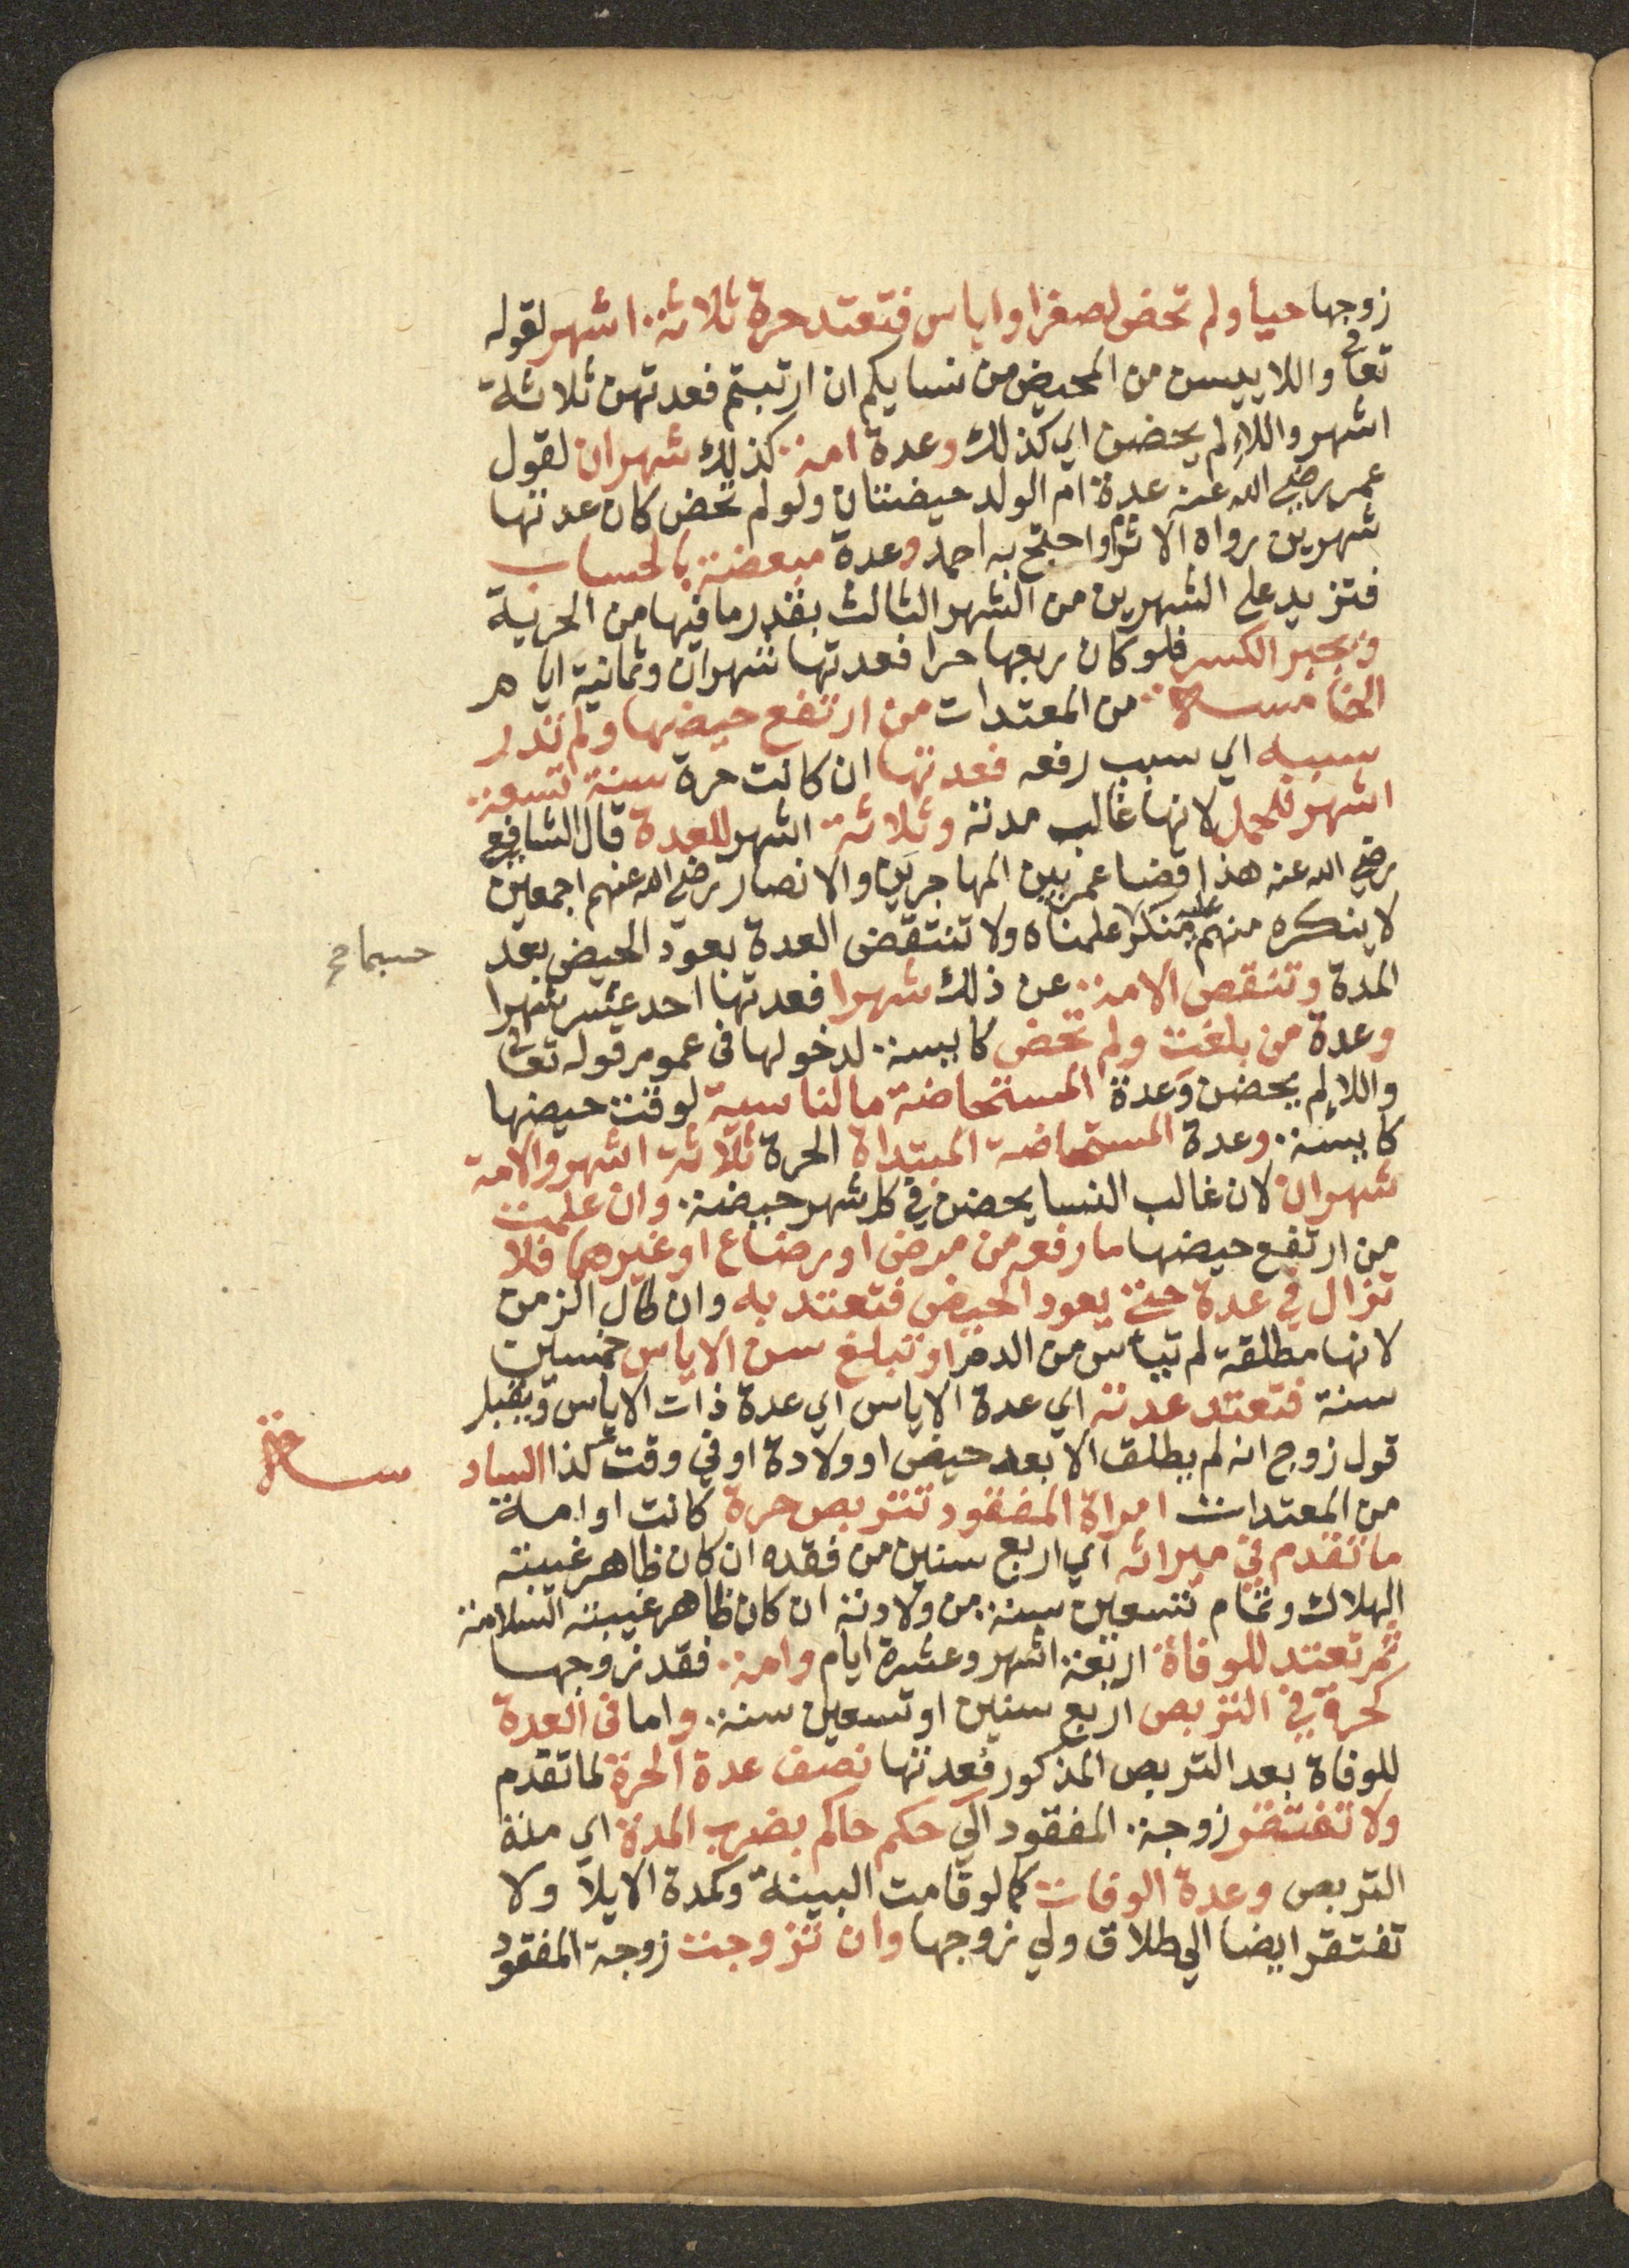 زوجها حيا ولم تحض لصغر او اياس فتعتد حرة ثلاثة اشهر لقوله
تعالى واللا ييسن من المحيض من نسايكم ان ارتبتم فعدتهن ثلاثة
اشهر واللاء لم يحضن اي كذلك وعدة امة كذلك شهران لقول
عمر رضي الله عنه عدة ام الولد حيضتان ولو لم تحض كان عدتها
شهرين رواه الاثرم واحتج به احمد وعدة مبعضة بالحساب
فتزيد على الشهرين من الشهر الثالث بقدر ما فيها من الحرية
ويجبر الكسر فلو كان ربعها حرا فعدتها شهران وثمانية ايام
الخامسة من المعتدات من ارتفع حيضها ولم تدر
سببه اي سبب رفعه فعدتها ان كانت حرة سنة تسعة
اشهر للحمل لانها غالب مدته وثلاثة اشهر للعدة قال الشافعي
رضي الله عنه هذا قضا عمر بين المهاجرين والانصار رضي الله عنهم اجمعين
لا ينكره منهم منكر علمناه ولا تنتقض العدة بعود الحيض بعد
المدة وتنقص الامة عن ذلك شهرا فعدتها احد عشر شهرا
وعدة من بلغت ولم تحض كايسة لدخولها في عموم قوله تعالى
واللاء لم يحضن وعدة المستحاضة مالناسية لوقت حيضها
كايسة وعدة المستحاضة المبتداة الحرة ثلاثة اشهر والامة
شهران لان غالب النسا يحضن في كل شهر حيضة وان علمت
من ارتفع حيضها ما رفعه من مرض او رضاع او غيرهما فلا
تزال في عدة حتى يعود الحيض فتعتد به وان طال الزمن
لانها مطلقة لم تيأس من الدم او تبلغ سن الاياس خمسين
سنة فتعتد عدته اي عدة الاياس اي عدة ذات الاياس ويقبل
قول زوج انه لم يطلق الا بعد حيض او ولادة او في وقت كذا الساد
سة
من المعتدات امراة المفقود تتربص حرة كانت او امة
ما تقدم في ميراثه اي اربع سنين من فقده ان كان ظاهر غيبته
الهلاك وتمام تسعين سنة من ولادته ان كان ظاهر غيبته السلامة
ثم تعتد للوفاة اربعة اشهر وعشرة ايام وامة فقد زوجها
كحرة في التربص اربع سنين او تسعين سنة واما في العدة
للوفاة بعد التربص المذكور فعدتها نصف عدة الحرة لما تقدم
ولا تفتقر زوجة المفقود الى حكم حاكم بضرب المدة اي مدة
التربص وعدة الوفات كما لو قامت البينة وكمدة الايلا ولا
تفتقر ايضا الى طلاق ولي زوجها وان تزوجت زوجة المفقود